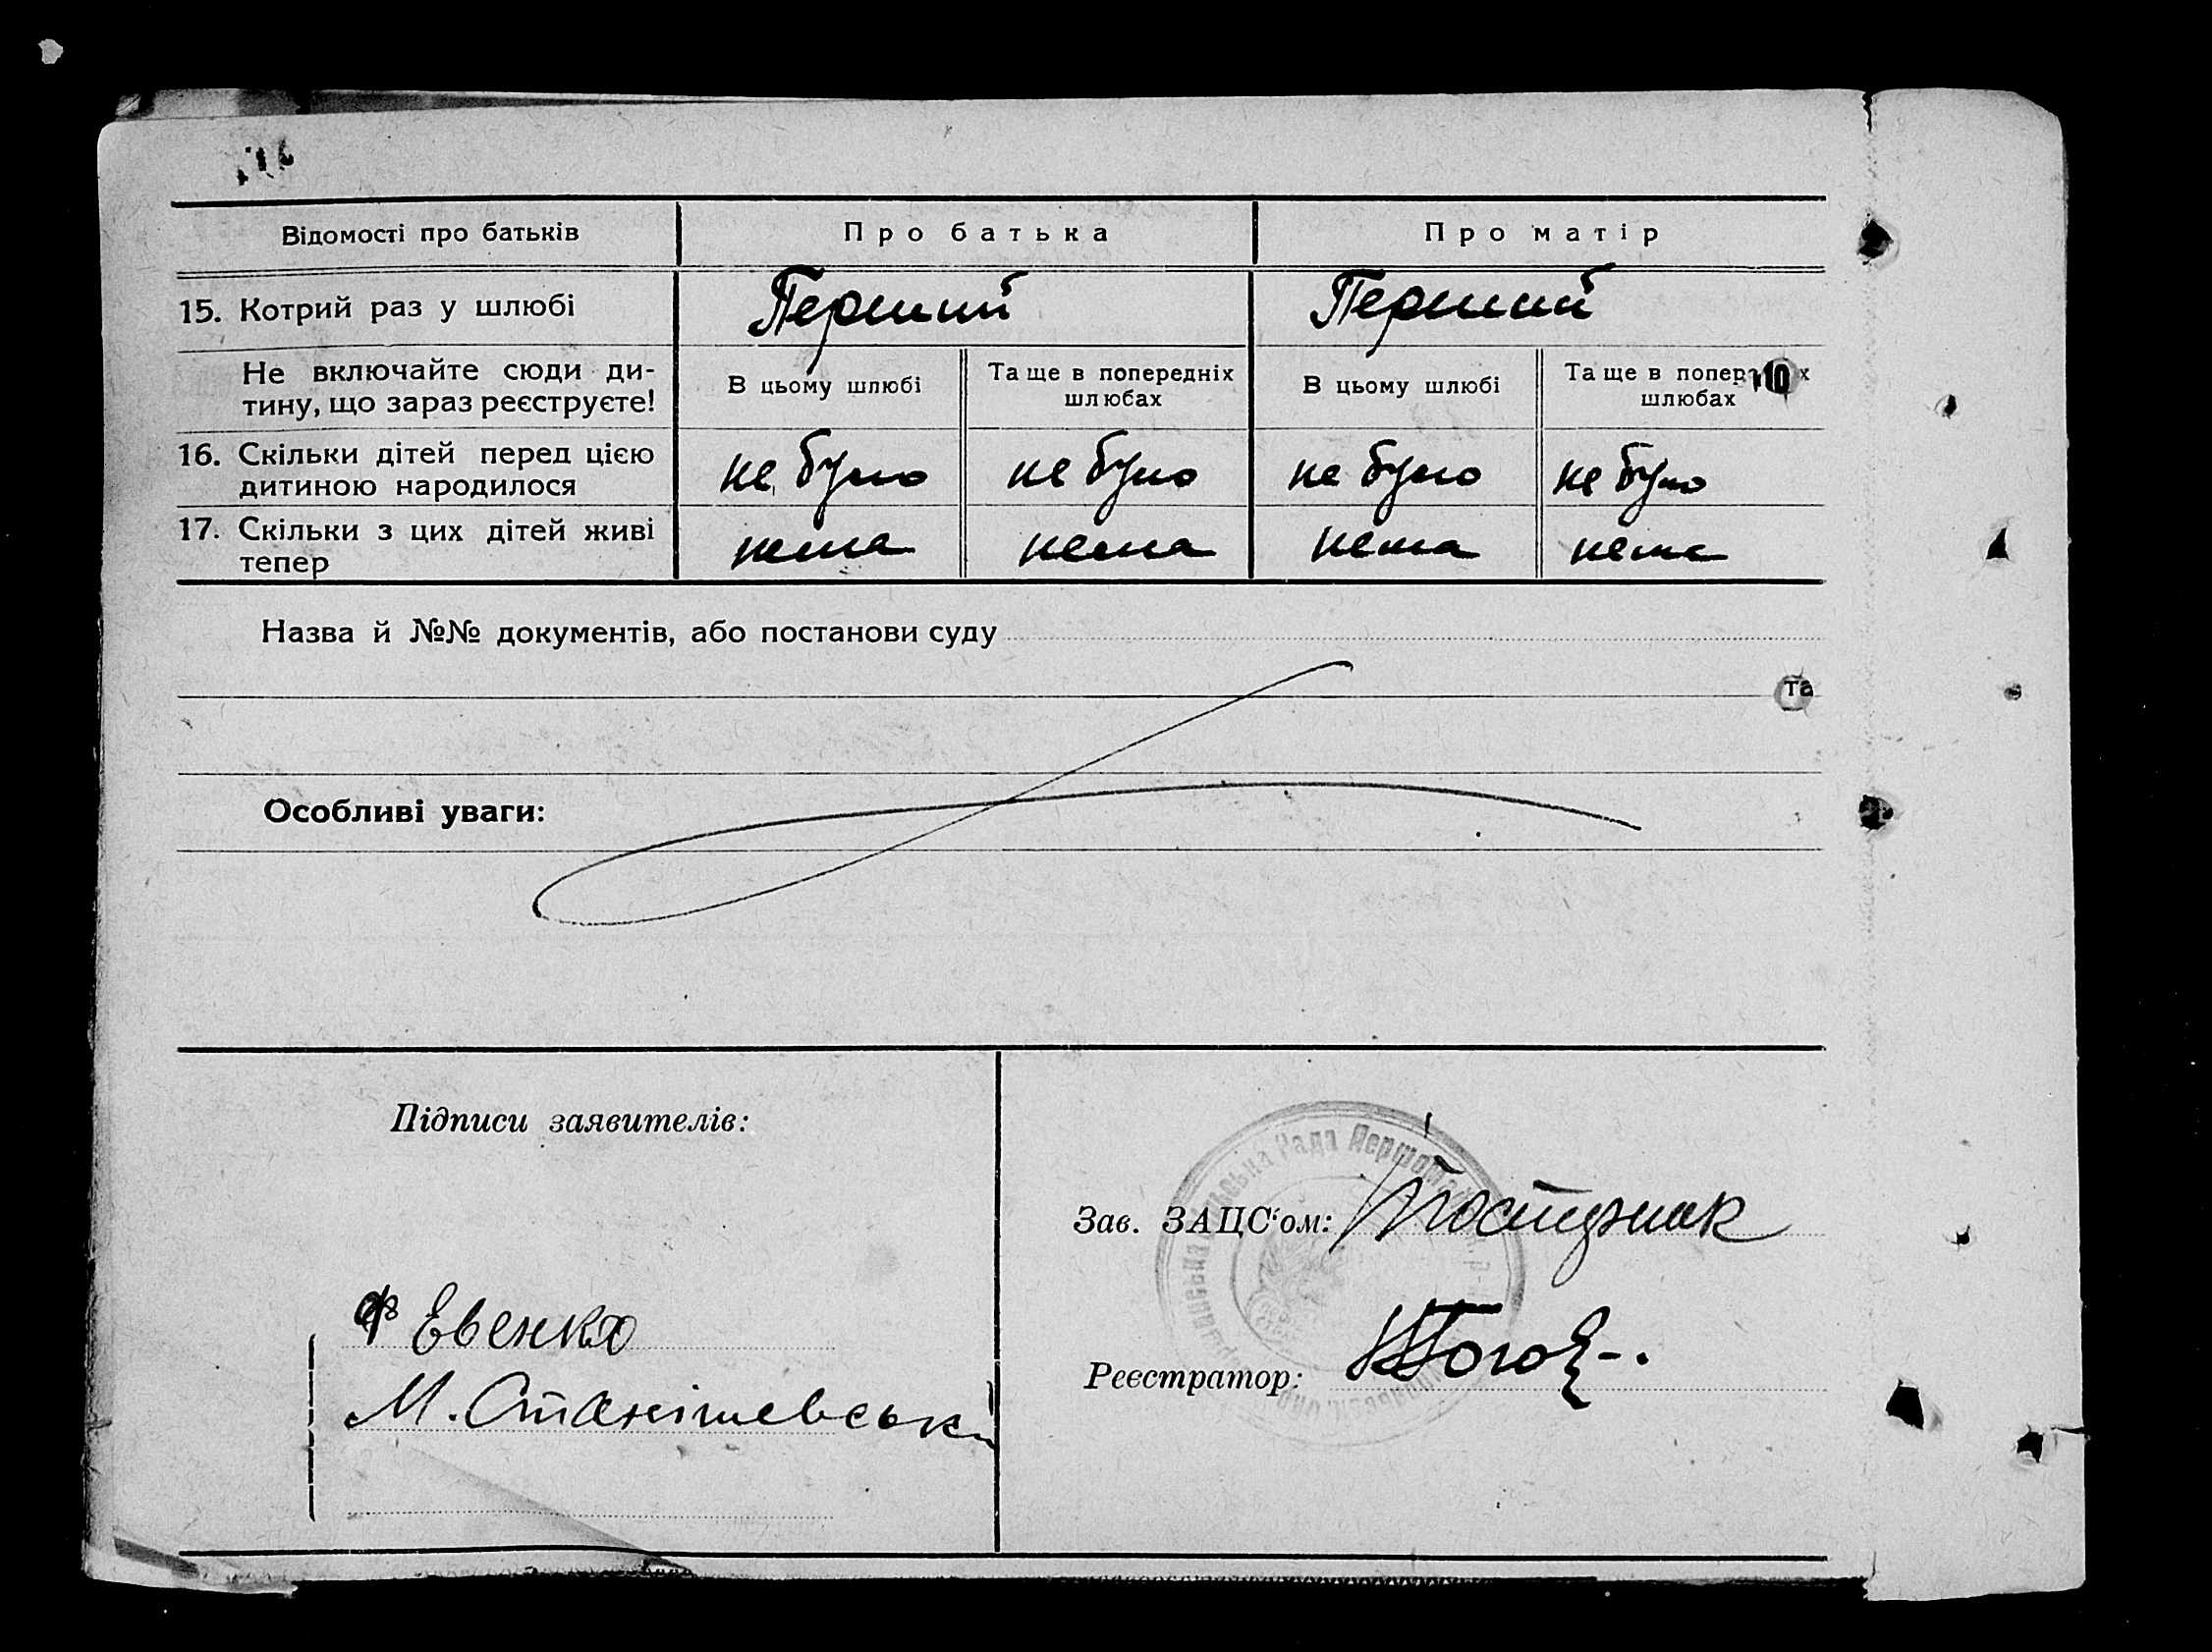 Відомості про батьків
Про батька
Про матір
15. Котрий раз у шлюбі
Перший
Перший
Не включайте сюди ди-
тину, що зараз реєструєте!
В цьому шлюбі
Та ще в попередніх
шлюбах
В цьому шлюбі
Та ще в
шлюбах
16. Скільки дітей перед цією
дитиною народилося
не було
не було
не було
не було
17. Скільки з цих дітей живі
тепер
нема
нема
нема
нема
Назва й №№ документів, або постанови суду
та
Особливі уваги:
Підписи заявителів:
Ф Евенко
М. Станішевськ
Зав. ЗАЦС'ом:
Реєстратор:
Рада